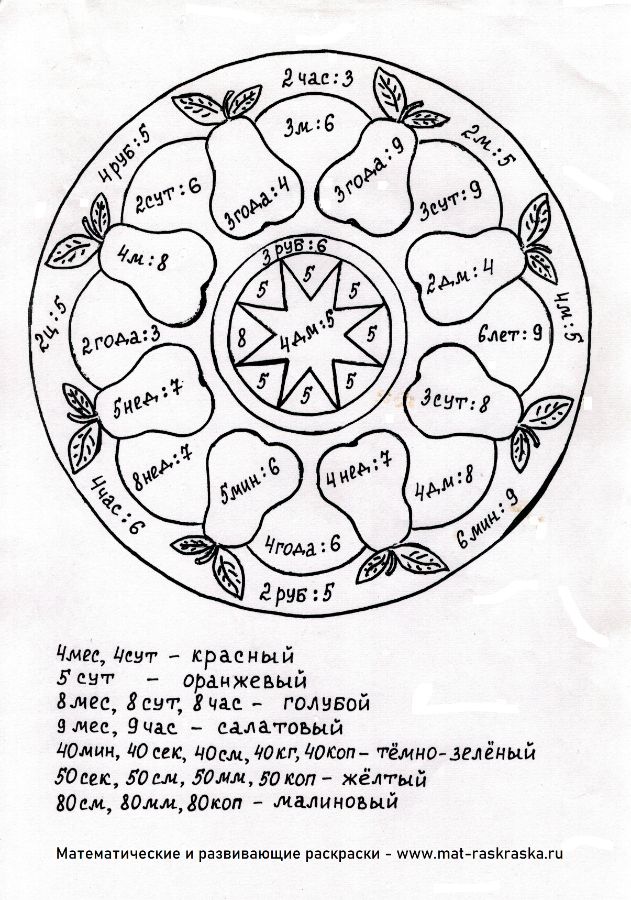 2 час:3
3м:6
4 руб:5
2м:5
2сут:6
3года:4
3года:9
3сут:9
4м:8
3 руб:6
2дм:4
5
5
5
2ц:5
2года:3
8
4дм:5
5
6лет:9
4м:5
5
5
5
5нед:7
3сут:8
8нед:7
5мин:6
4нед:7
4дм:8
4час:6
4года:6
6мин:9
2руб:5
4мес, 4сут - красный
5 сут - оранжевый
8мес, 8сут, 8час - голубой
9мес, 9час - салатовый
40мин, 40сек, 40см, 40кг, 40коп - тёмно-зелёный
50сек, 50см, 50мм, 50коп - жёлтый
80см, 80мм, 80коп - малиновый
Математические и развивающие раскраски - www.mat-raskraska.ru